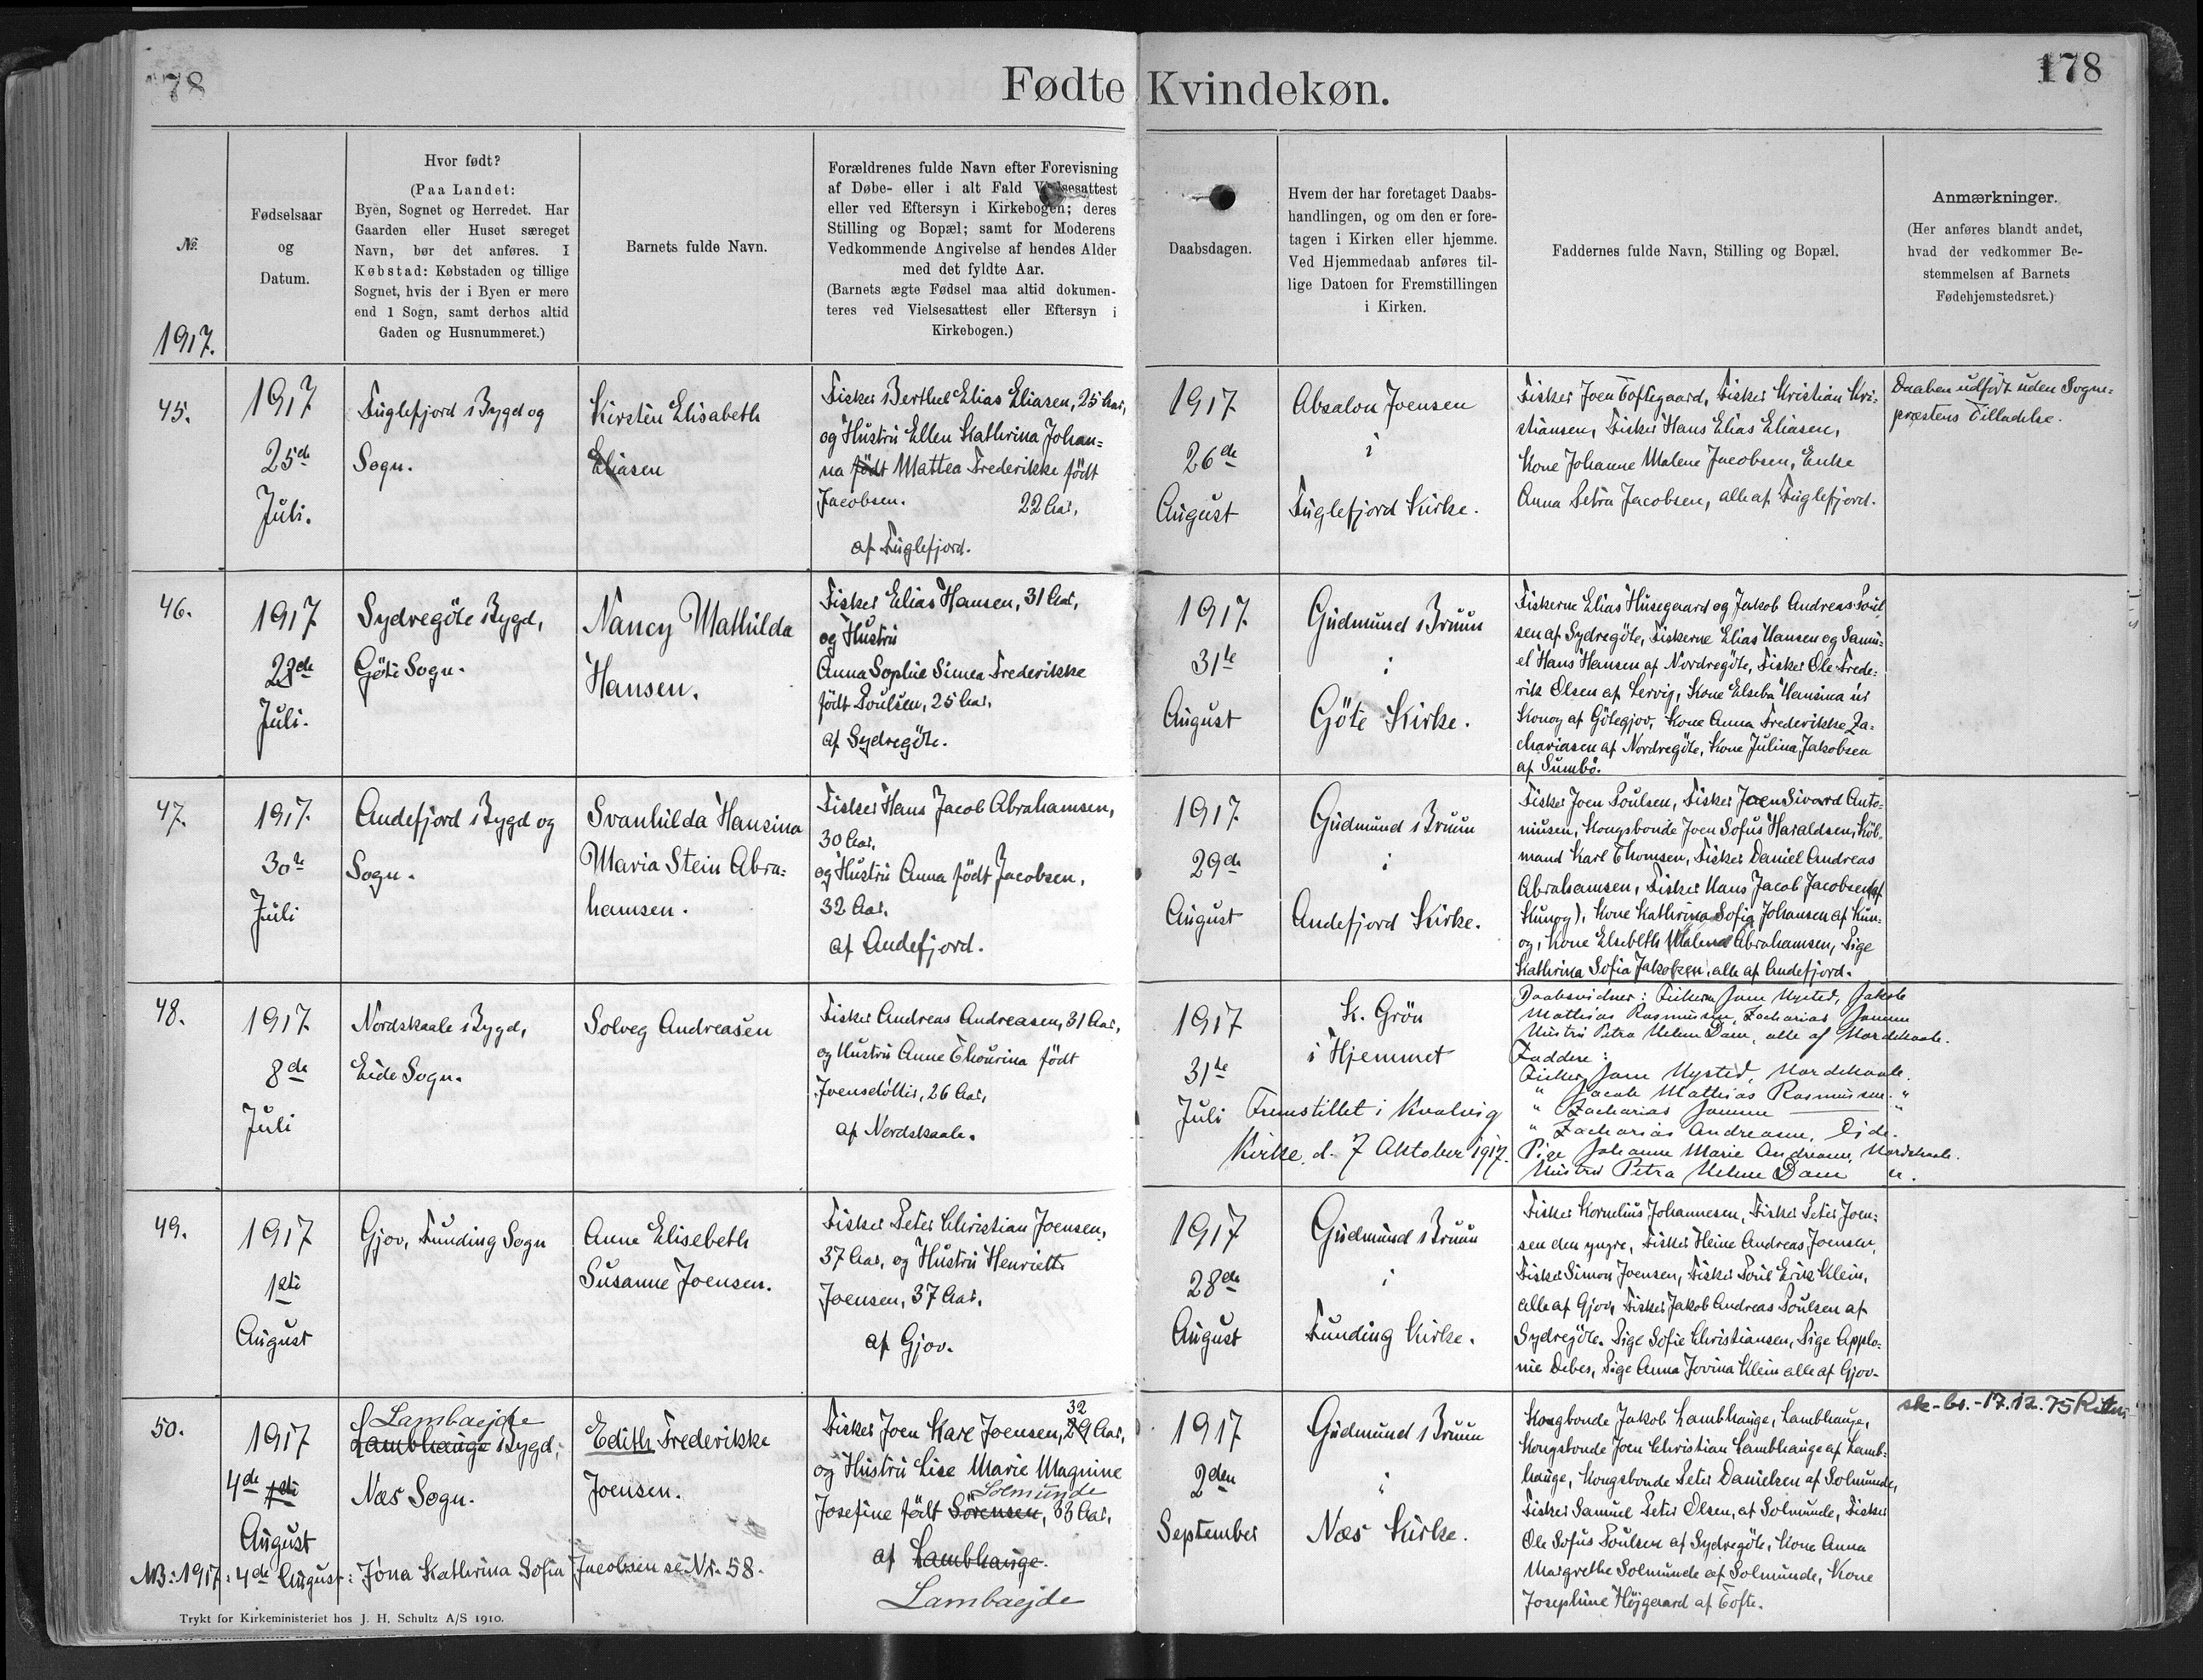 78
Fødte Kvindekøn.
178
№.
1917.
Fødselsaar
og
Datum.
Hvor født?
(Paa Landet:
Byen, Sognet og Herredet. Har
Gaarden eller Huset særeget
Navn, bør det anføres. I
Købstad: Købstaden og tillige
Sognet, hvis der i Byen er mere
end 1 Sogn, samt derhos altid
Gaden og Husnummeret.)
Barnets fulde Navn.
Forældrenes fulde Navn efter Forevisning
af Døbe- eller i alt Fald Vielsesattest
eller ved Eftersyn i Kirkebogen; deres
Stilling og Bopæl; samt for Moderens
Vedkommende Angivelse af hendes Alder
med det fyldte Aar.
(Barnets ægte Fødsel maa altid dokumen-
teres ved Vielsesattest eller Eftersyn i
Kirkebogen.)
Daabsdagen.
Hvem der har foretaget Daabs-
handlingen, og om den er fore-
tagen i Kirken eller hjemme.
Ved Hjemmedaab anføres til-
lige Datoen for Fremstillingen
i Kirken.
Faddernes fulde Navn, Stilling og Bopæl.
Anmærkninger.
(Her anføres blandt andet,
hvad der vedkommer Be-
stemmelsen af Barnets
Fødehjemstedsret.)
45.
1917
25de
Juli.
Fuglefjord Bygd og
Sogn.
Kirstin Elisabeth
Eliasen
Fisker Berthel Elias Eliasen, 25 Aar,
og Hustru Ellen Kathrina Johan=
na født Mattea Frederikke født
Jacobsen. 22 Aar,
af Fuglefjord.
1917
26de
August
Absalon Joensen
i
Fuglefjord Kirke.
Fisker Joen Toftegaard, Fisker Kristian Kri=
stiansen, Fisker Hans Elias Eliasen,
Kone Johanne Malene Jacobsen, Enke
Anna Petra Jacobsen, alle af Fuglefjord.
Daaben udført uden Sogne=
præstens Tilladelse.
46.
1917
23de
Juli.
Sydregöte Bygd,
Göte Sogn.
Nancy Mathilda
Hansen.
Fisker Elias Hansen, 31 Aar,
og Hustru
Anna Sophie Simea Frederikke
født Poulsen, 25 Aar,
af Sydregöte.
1917.
31te
August
Gudmund Bruun
i
Göte Kirke.
Fiskerne Elias Husegaard og Jakob Andreas Poul
sen af Sydregöte, Fiskerne Elias Hansen og Samu=
el Hans Hansen af Nordregöte, Fisker Ole Frede=
rik Olsen af Lervig, Kone Elseba Hansina úr
Konoy af Götegjov, Kone Anna Frederikke Za=
chariasen af Nordregöte, Kone Julina Jakobsen
af Sumbö.
47.
1917.
30te
Juli
Andefjord Bygd og
Sogn.
Svanhilda Hansina
Maria Stein Abra=
hamsen.
Fisker Hans Jacob Abrahamsen,
30 Aar,
og Hustru Anna født Jacobsen,
32 Aar,
af Andefjord.
1917
29de
August
Gudmund Bruun
i
Andefjord Kirke.
Fisker Joen Poulsen, Fisker Joen Sivard Anto=
niusen, Kongsbonde Joen Sofus Haraldsen, Köb=
mand Karl Thomsen, Fisker Daniel Andreas
Abrahamsen, Fisker Hans Jacob Jacobsen (af
Kunoy), Kone Kathrina Sofia Johansen af Kun=
oy, Kone Elsebeth Malene Abrahamsen, Pige
Kathrina Sofia Jakobsen, alle af Andefjord.
48.
1917
8de
Juli
Nordskaale Bygd,
Eide Sogn.
Solveg Andreasen
Fisker Andreas Andreasen, 31 Aar,
og Hustru Anne Thourina født
Joensdóttir, 26 Aar,
af Nordskaale.
1917
31te
Juli
K. Grön
i Hjemmet
Fremstillet i Kvalvig
Kirke. d. 7 Oktober 1917.
Daabsvidner: Fiskern Jans Nysted, Jakob
Mathias Rasmussen, Zacharias
Hustru Petra Helene Dam, alle af Nordskaale.
Faddere:
Fisker Jans Nysted, Nordskaale.
" Jacob Mathias Rasmussen. "
" Zacharias — "
" Zacharias Andreasen, Ejde.
Pige Johanne Marie Andreasen, Nordskaale.
Hustru Petra Helene Dam n.
49.
1917
1ste
August
Gjov, Funding Sogn
Anne Elisebeth
Susanne Joensen.
Fisker Peter Christian Joensen,
37 Aar, og Hustru Henriette
Joensen, 37 Aar,
af Gjov.
1917
28de
August
Gudmund Bruun
i
Funding Kirke.
Fisker Kornelius Johannesen, Fisker Peter Joen=
sen den yngre, Fisker Heine Andreas Joensen,
Fisker Simon Joensen, Fisker Poul Erik Klein,
alle af Gjov, Fisker Jakob Andreas Poulsen af
Sydregöte. Pige Sofie Christiansen, Pige Applo=
nie Debes, Pige Anna Jovina Klein alle af Gjov.
50.
1917
4de 1ste
August
Lambaejde
Lambhauge Bygd,
Næs Sogn.
Edith Frederikke
Joensen.
32
Fisker Joen Hare Joensen, 29 Aar,
og Hustru Lise Marie Magnine
Solmunde
Josefine født Sörensen, 33 Aar,
af Lambhauge.
Lambaejde
1917
2den
September
Gudmund Bruun
i
Næs Kirke.
Kongbonde Jakob Lambhauge, Lambhauge,
Kongsbonde Joen Christian Lambhauge af Lamb=
hauge, Kongsbonde Peter Danielsen af Solmunde,
Fisker Samuel Peter Olsen, af Solmunde, Fisker
Ole Sofus Poulsen af Sydregöte, Kone Anna
Margrethe Solmunde af Solmunde, Kone
Josephine Højgaard af Tofte.
sk-br.-17.12.75
NB: 1917: 4de August: Jóna Kathrina Sofia Jacobsen se Nr. 58.
Trykt for Kirkeministeriet hos J. H. Schultz A/S 1910.